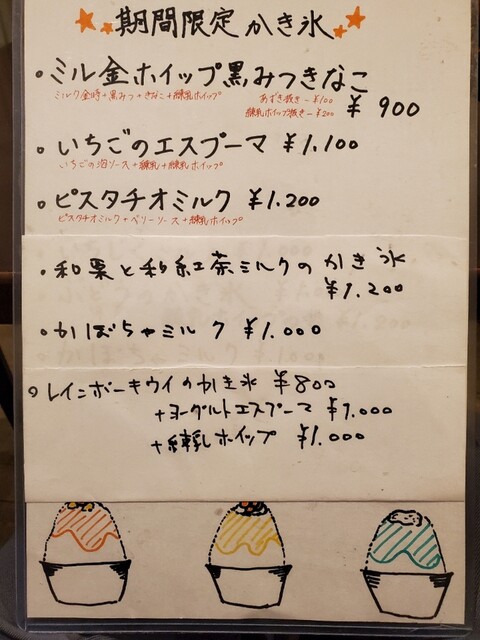 期間限定 かき氷
・ミル金ホイップ黒みつきなこ
ミルク金時+黒みつ+きなこ+練乳ホイップ
あずき抜き-¥100
練乳ホイップ抜き-¥200
¥900
・いちごのエスプーマ ¥1.100
いちごの泡ソース+練乳+練乳ホイップ
・ピスタチオミルク ¥1.200
ピスタチオミルク+ベリーソース+練乳ホイップ
・和栗と和紅茶ミルクのかき氷
¥1.200
・かぼちゃミルク ¥1.000
・レインボーキウイのかき氷 ¥800
+ヨーグルトエスプーマ ¥1.000
+練乳ホイップ ¥1.000